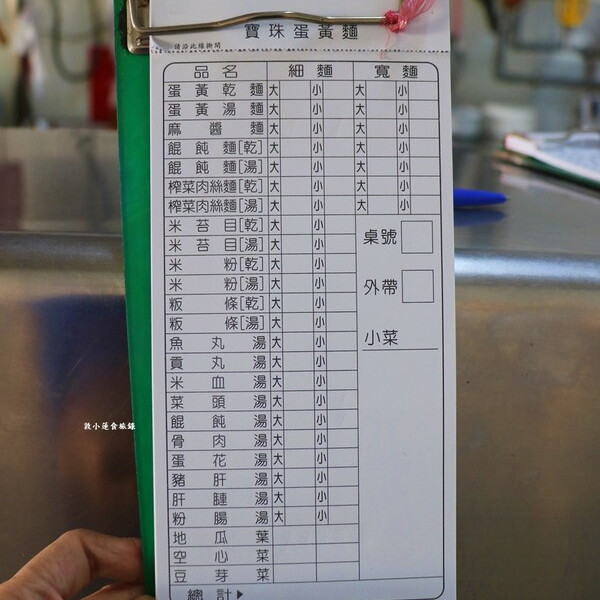 寶珠蛋黃麵
請沿此線撕開
品名 細麵 寬麵
蛋黃乾麵 大 小 大 小
蛋黃湯麵 大 小 大 小
麻醬麵 大 小 大 小
餛飩麵[乾] 大 小 大 小
餛飩麵[湯] 大 小 大 小
榨菜肉絲麵[乾] 大 小 大 小
榨菜肉絲麵[湯] 大 小 大 小
米苔目[乾] 大 小
米苔目[湯] 大 小
米粉[乾] 大 小
米粉[湯] 大 小
粄條[乾] 大 小
粄條[湯] 大 小
魚丸湯 大 小
貢丸湯 大 小
米血湯 大 小
菜頭湯 大 小
餛飩湯 大 小
骨肉湯 大 小
蛋花湯 大 小
豬肝湯 大 小
肝腫湯 大 小
粉腸湯 大 小
地瓜葉
空心菜
豆芽菜
總計▶
桌號
外帶
小菜
敦小蓮食旅錄